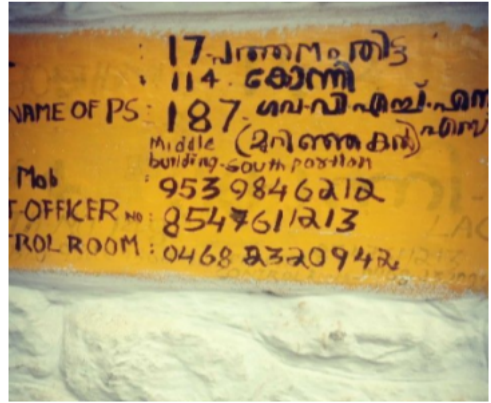 : 17 പത്തനംതിട്ട
: 114. കോന്നി
NAME OF PS : 187. ഗവ.വി.എച്ച്.എസ്
Middle
building-South portion
Mob : 9539846212
T-OFFICER NO : 8547611213
ROL ROOM : 0468 2320942